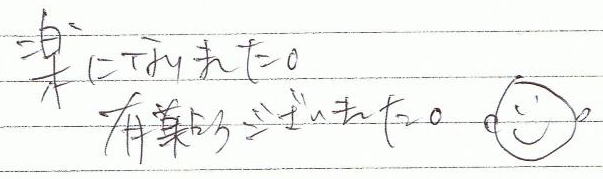 楽になりました。
有難うございました。